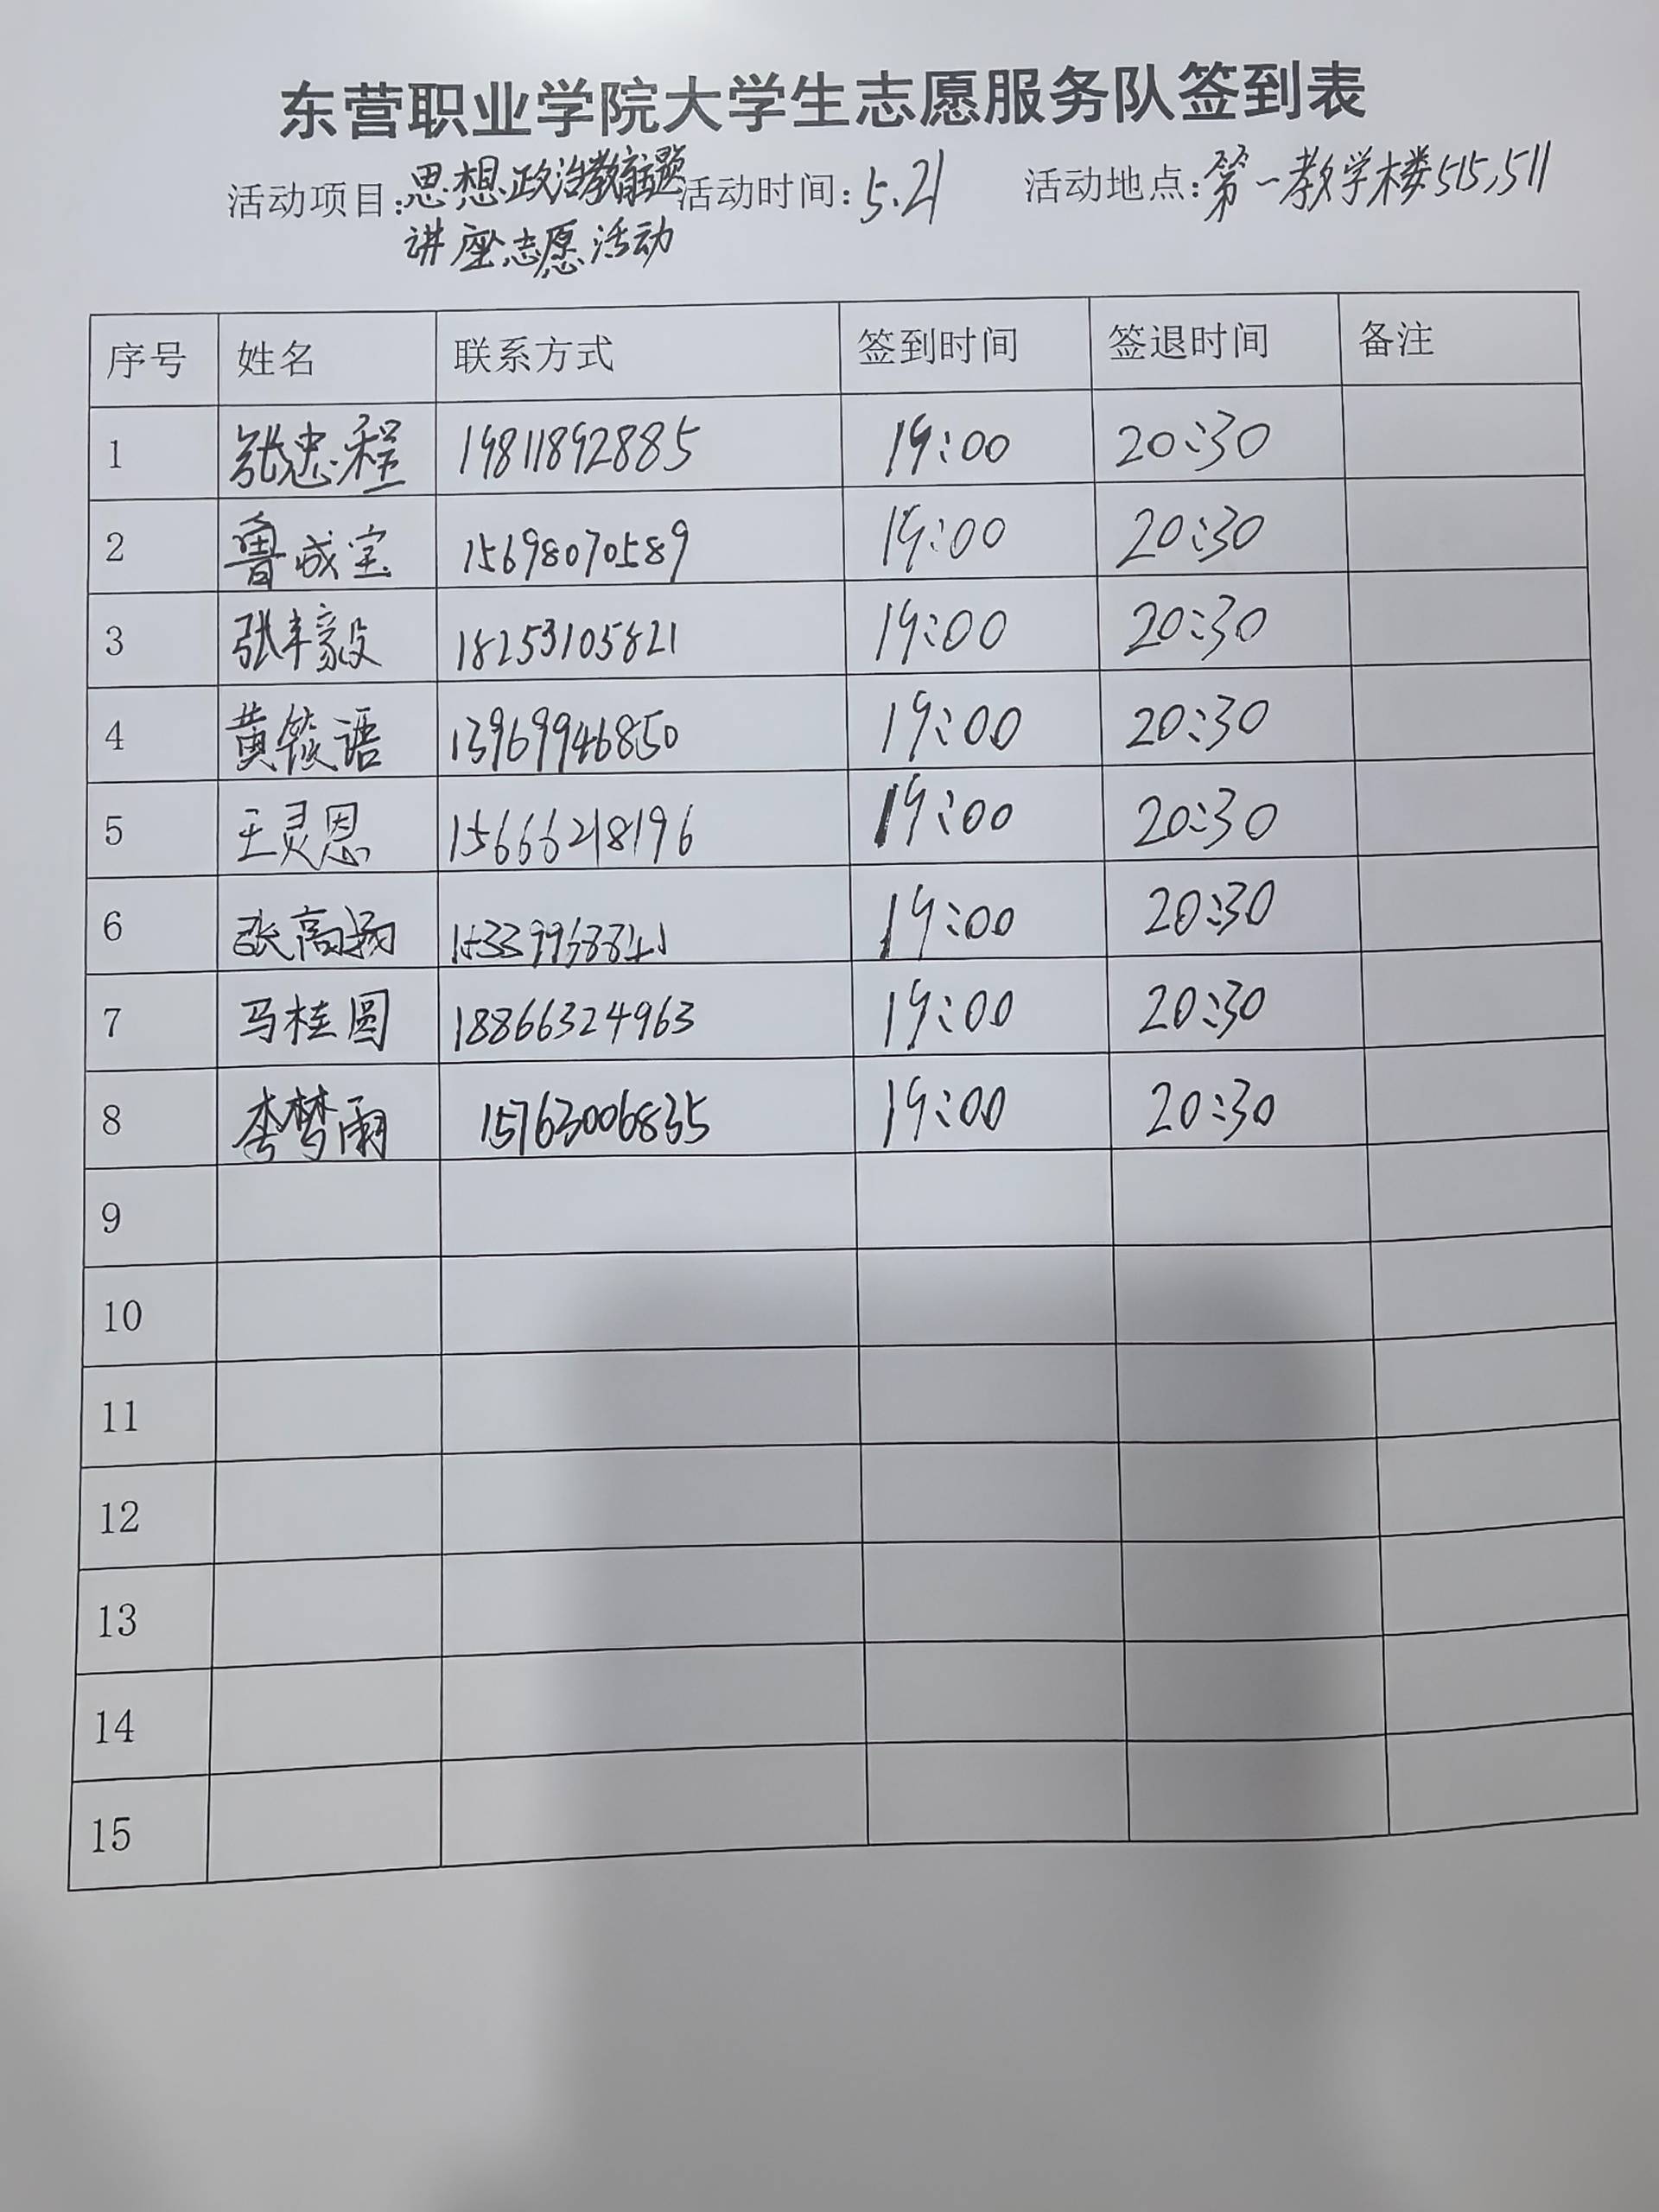 东营职业学院大学生志愿服务队签到表
活动项目:思想政治教育主题 活动时间:5.21 活动地点:第一教学楼515,511
讲座志愿活动
序号 姓名 联系方式 签到时间 签退时间 备注
1 张忠程 19811892885 19:00 20:30
2 鲁成宝 15698070589 19:00 20:30
3 张丰毅 18253105821 19:00 20:30
4 黄筱语 13969946850 19:00 20:30
5 王灵恩 15666218196 19:00 20:30
6 张高扬 19:00 20:30
7 马桂圆 18866324963 19:00 20:30
8 李梦雨 15763006835 19:00 20:30
9
10
11
12
13
14
15